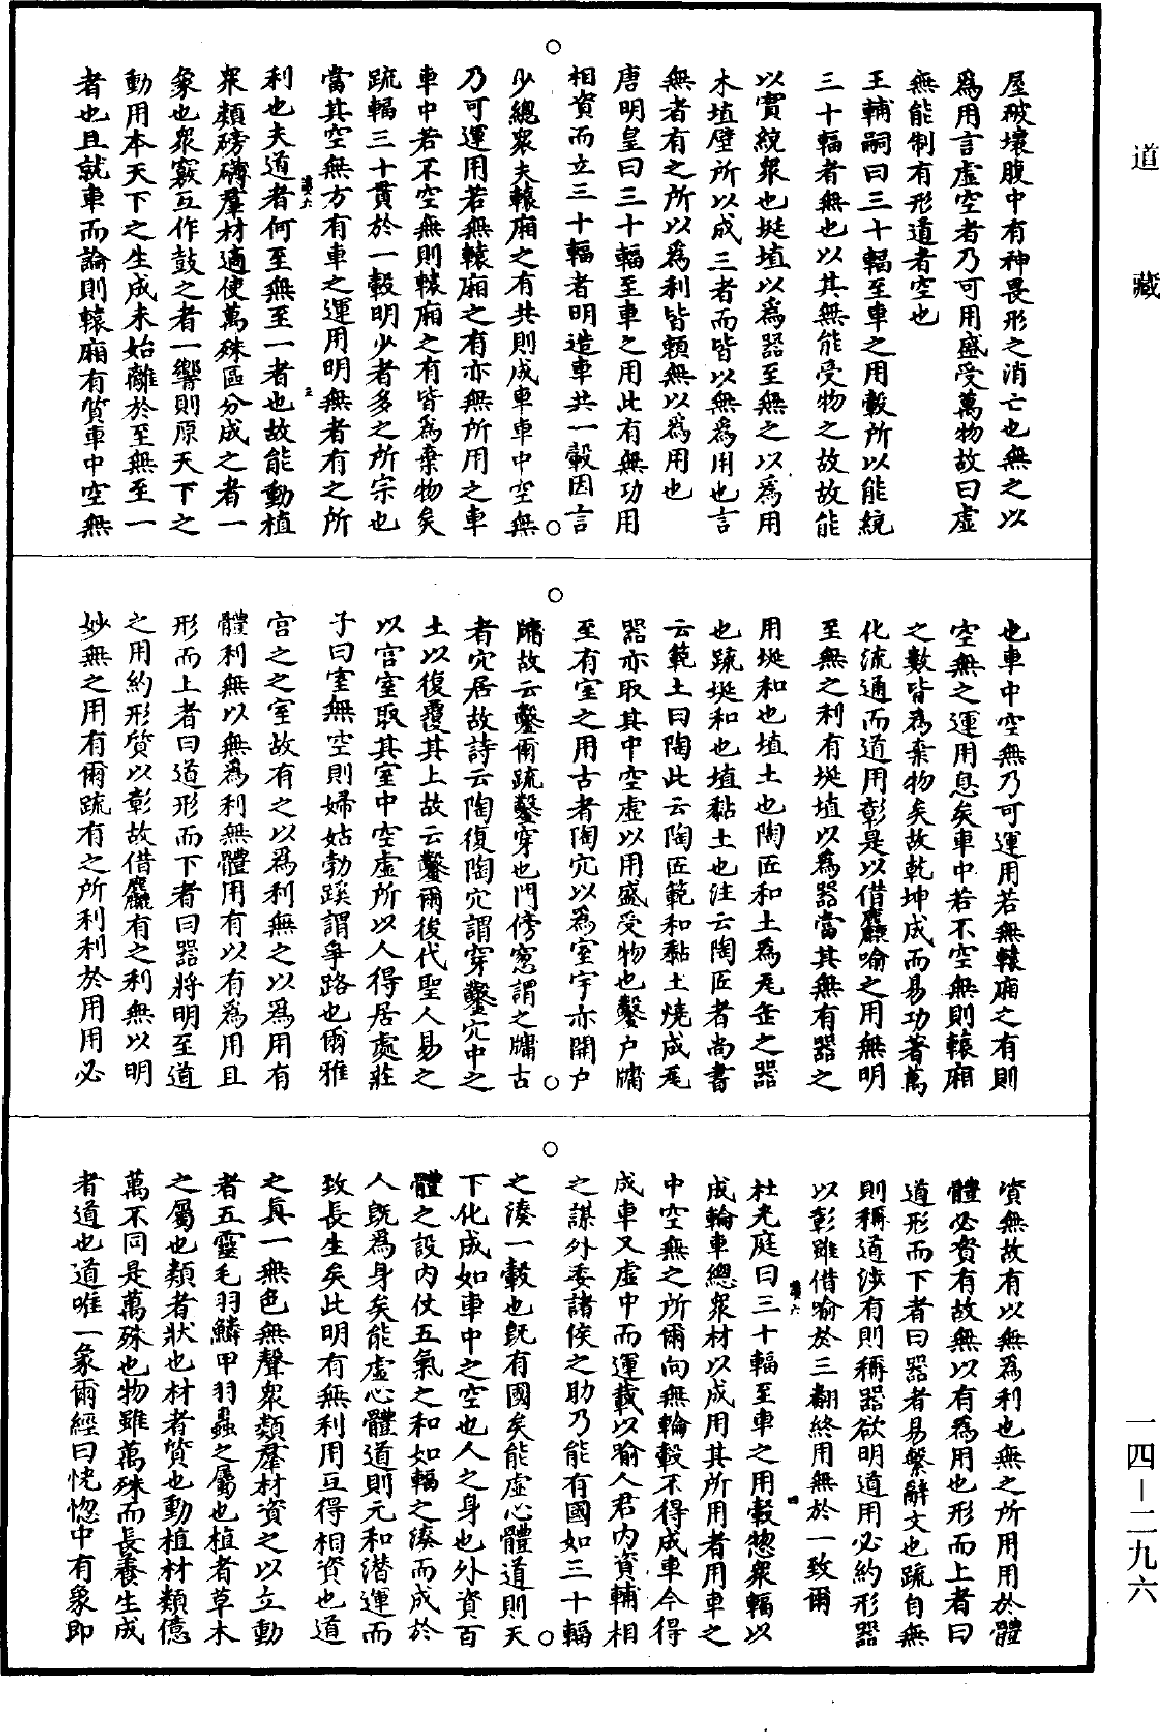 道藏
屋破壞腹中有神畏形之消亡也無之以
爲用言虛空者乃可用盛受萬物故曰虛
無能制有形道者空也
王輔嗣曰三十輻至車之用轂所以能統
三十輻者無也以其無能受物之故故能
以實統衆也埏埴以爲器至無之以爲用
木埴壁所以成三者而皆以無爲用也言
無者有之所以爲利皆賴無以爲用也
唐明皇曰三十輻至車之用此有無功用
相資而立三十輻者明造車共一轂因言
少總衆夫轅廂之有共則成車車中空無
乃可運用若無轅廂之有亦無所用之車
車中若不空無則轅廂之有皆爲棄物矣
疏輻三十貫於一轂明少者多之所宗也
當其空無方有車之運用明無者有之所
利也夫道者何至無至一者也故能動植
衆類磅礡羣材適使萬殊區分成之者一
象也衆竅互作鼓之者一響則原天下之
動用本天下之生成未始離於至無至一
者也且就車而論則轅廂有質車中空無
也車中空無乃可運用若無轅廂之有則
空無之運用息矣車中若不空無則轅廂
之數皆爲棄物矣故乾坤成而易功著萬
化流通而道用彰是以借麤喻之用無明
至無之利有埏埴以爲器當其無有器之
用埏和也埴土也陶匠和土爲瓦缶之器
也疏埏和也埴黏土也注云陶匠者尚書
云範土曰陶此云陶匠範和黏土燒成瓦
器亦取其中空虛以用盛受物也鑿户牖
至有室之用古者陶穴以爲室宇亦開户
牖故云鑿爾疏鑿穿也門傍窓謂之牖古
者穴居故詩云陶復陶穴謂穿鑿穴中之
土以復覆其上故云鑿爾後代聖人易之
以宫室取其室中空虛所以人得居處莊
子曰室無空則婦姑勃蹊謂爭路也爾雅
宫之之室故有之以爲利無之以爲用有
體利無以無爲利無體用有以有爲用且
形而上者曰道形而下者曰器將明至道
之用約形質以彰故借麤有之利無以明
妙無之用有爾疏有之所利利於用用必
資無故有以無爲利也無之所用用於體
體必資有故無以有爲用也形而上者曰
道形而下者曰器者易繫辭文也疏自無
則稱道涉有則稱器欲明道用必約形器
以彰雖借喻於三翻終用無於一致爾
杜光庭曰三十輻至車之用轂惣衆輻以
成輪車總衆材以成用其所用者用車之
中空無之所爾向無輪轂不得成車今得
成車又虛中而運載以喻人君内資輔相
之謀外委諸侯之助乃能有國如三十輻
之湊一轂也旣有國矣能虛心體道則天
下化成如車中之空也人之身也外資百
體之設内仗五氣之和如輻之湊而成於
人旣爲身矣能虛心體道則元和潛運而
致長生矣此明有無利用互得相資也道
之眞一無色無聲衆類羣材資之以立動
者五靈毛羽鱗甲羽蟲之屬也植者草木
之屬也類者狀也材者質也動植材類億
萬不同是萬殊也物雖萬殊而長養生成
者道也道唯一象爾經曰恍惚中有象即
一四—二九六